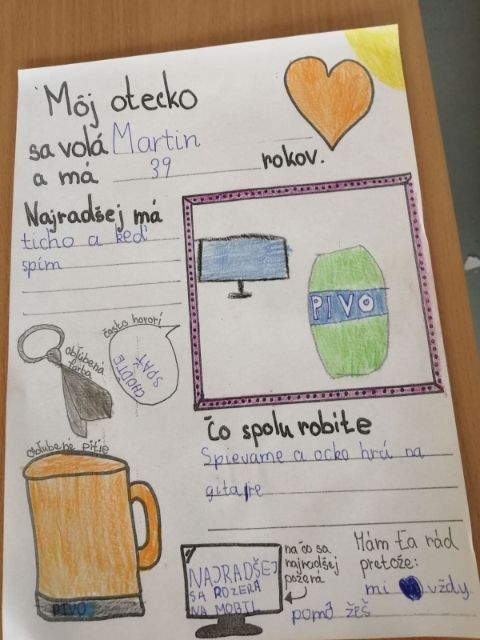 Môj otecko
sa volá Martin
a má 39 rokov.
Najradšej má
ticho a keď
spím
PIVO
často hovorí
CHOĎTE
SPAŤ
obľúbená
farba
obľúbené pitie
PIVO
Čo spolu robíte
Spievame a ocko hrá na
gitare
NAJRADŠEJ
SA POZERÁ
NA MOBIL
na čo sa
najradšej
pozerá
Mám ťa rád
pretože:
mi vždy
pomô žeš